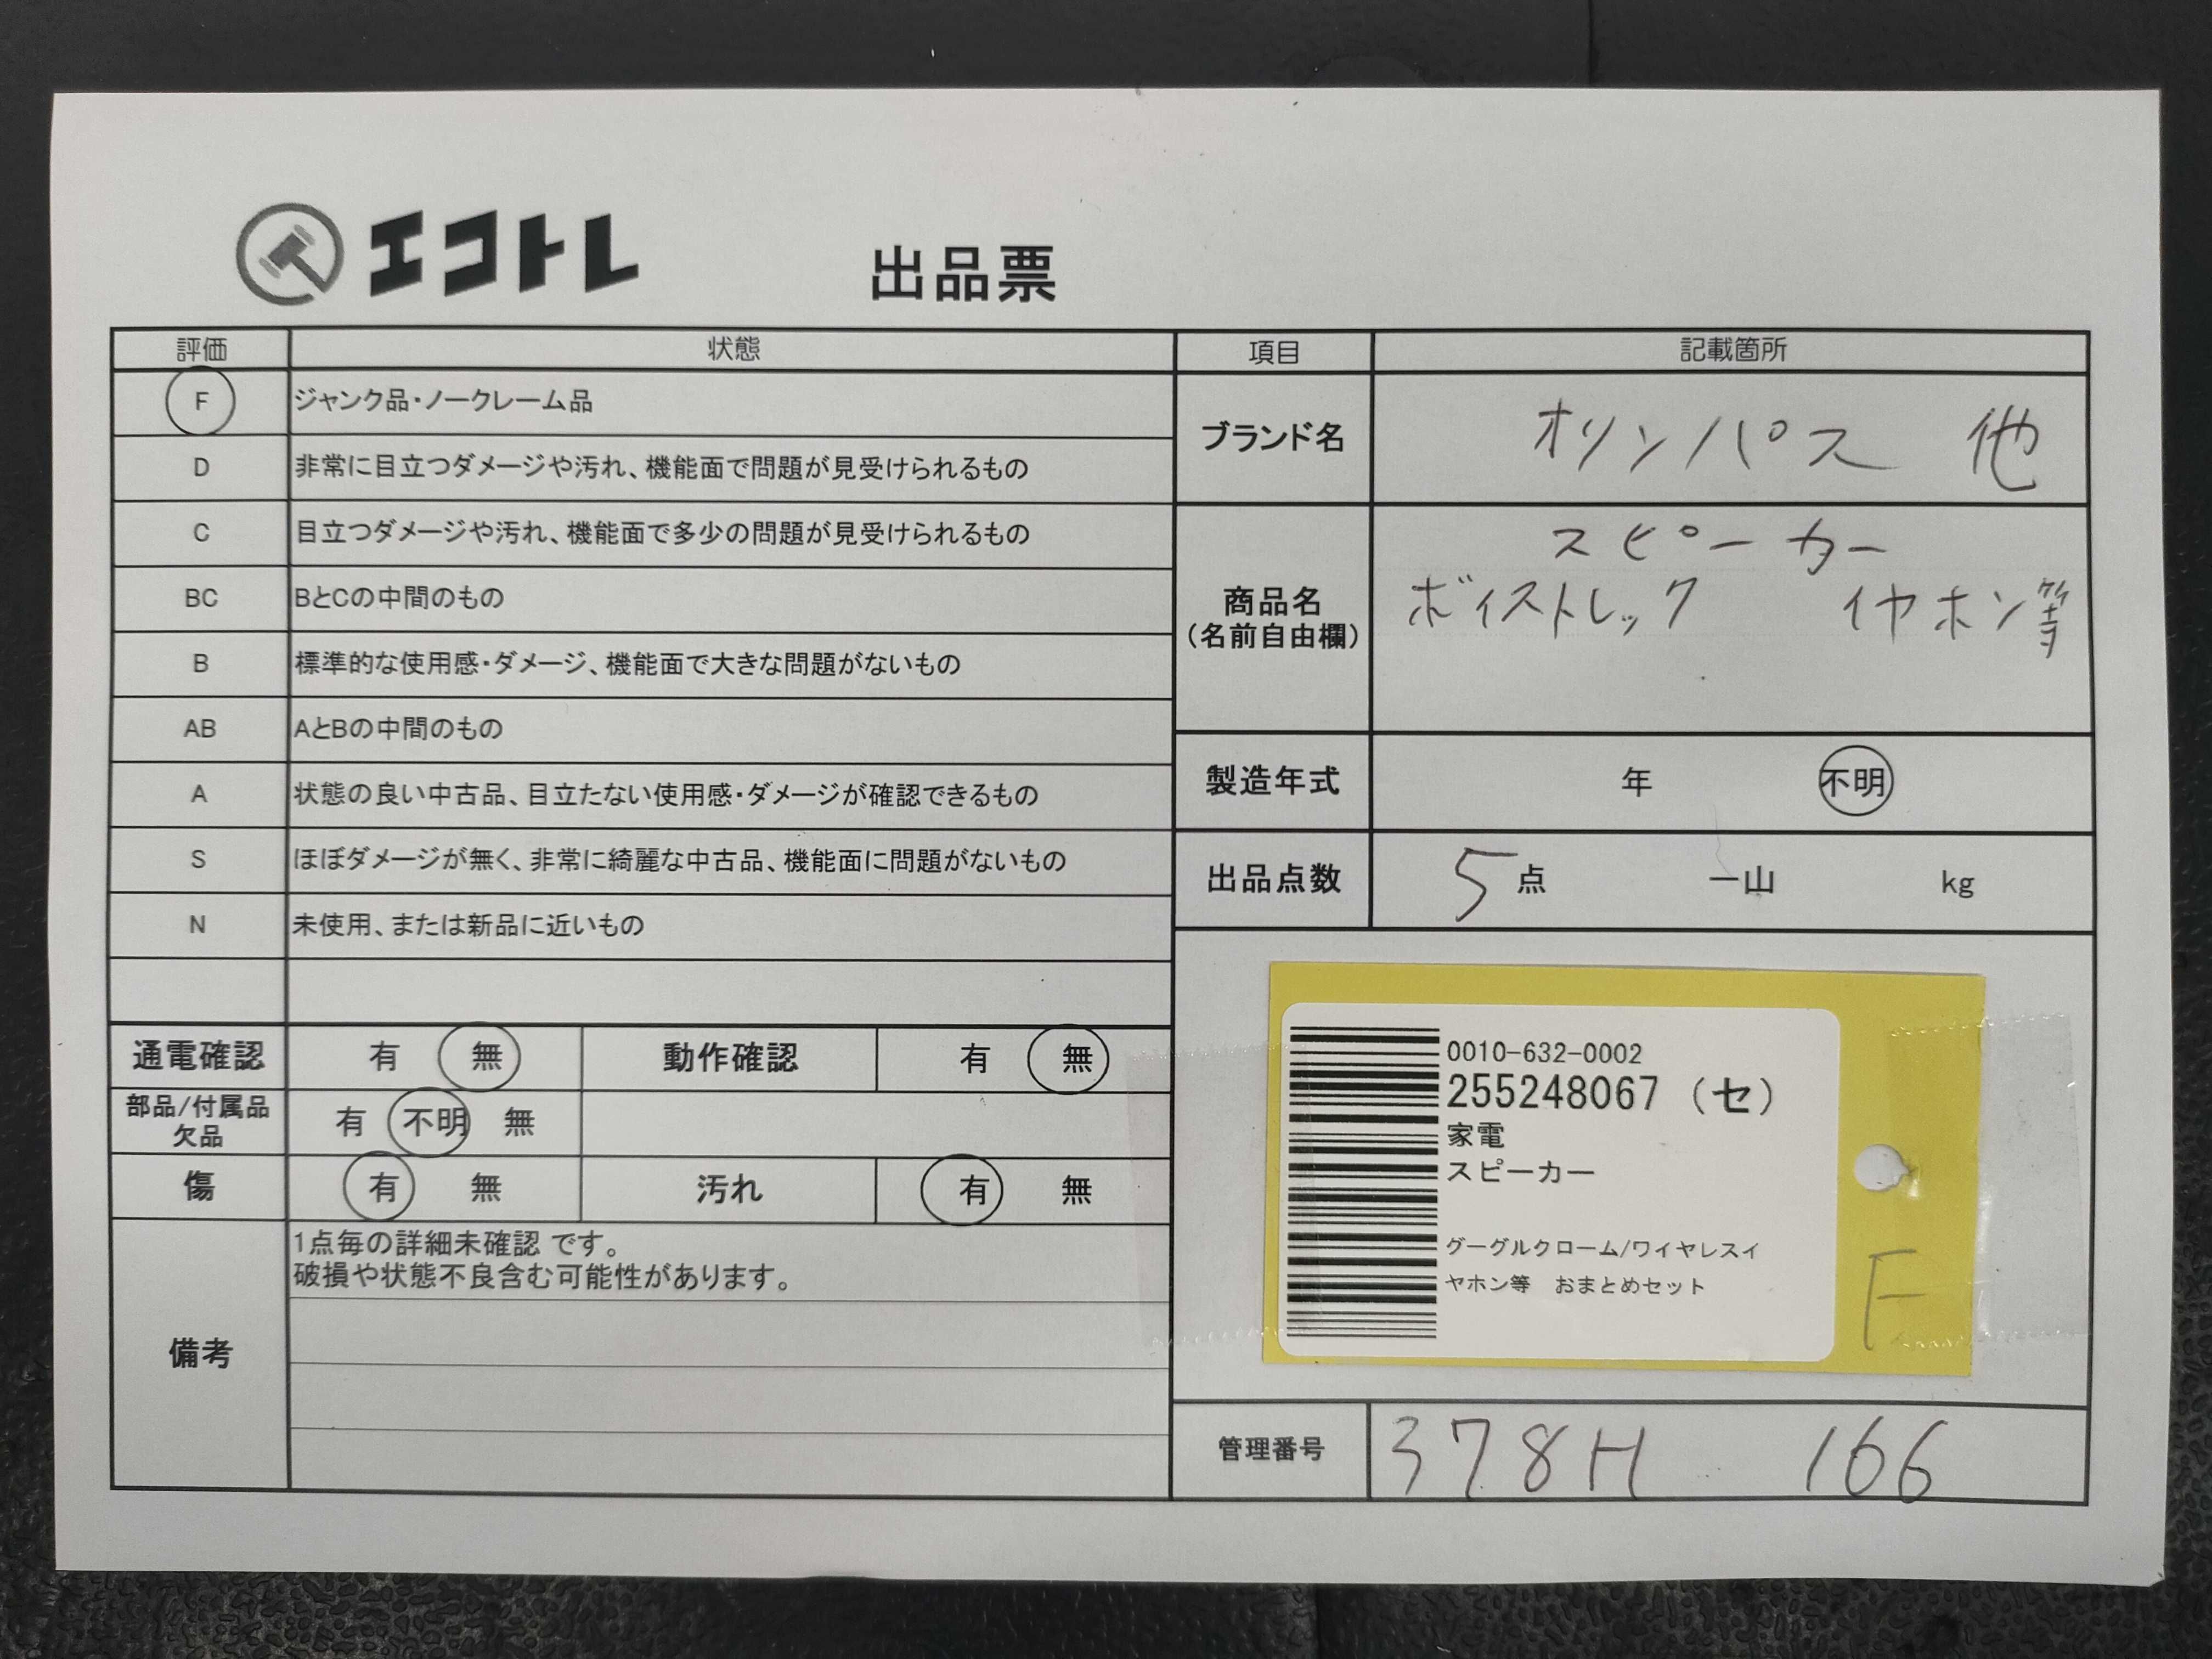 エコトレ
出品票
評価 状態 項目 記載箇所
F ジャンク品・ノークレーム品
D 非常に目立つダメージや汚れ、機能面で問題が見受けられるもの
C 目立つダメージや汚れ、機能面で多少の問題が見受けられるもの
BC BとCの中間のもの
B 標準的な使用感・ダメージ、機能面で大きな問題がないもの
AB AとBの中間のもの
A 状態の良い中古品、目立たない使用感・ダメージが確認できるもの
S ほぼダメージが無く、非常に綺麗な中古品、機能面に問題がないもの
N 未使用、または新品に近いもの
通電確認 有 無 動作確認 有 無
部品/付属品
欠品 有 不明 無
傷 有 無 汚れ 有 無
備考
1点毎の詳細未確認 です。
破損や状態不良含む可能性があります。
ブランド名 オリンパス 他
商品名
(名前自由欄)
スピーカー
ボイストレック イヤホン等
製造年式 年 不明
出品点数 5点 一山 kg
0010-632-0002
255248067 (セ)
家電
スピーカー
グーグルクローム/ワイヤレスイ
ヤホン等 おまとめセット
F
管理番号 378H 166